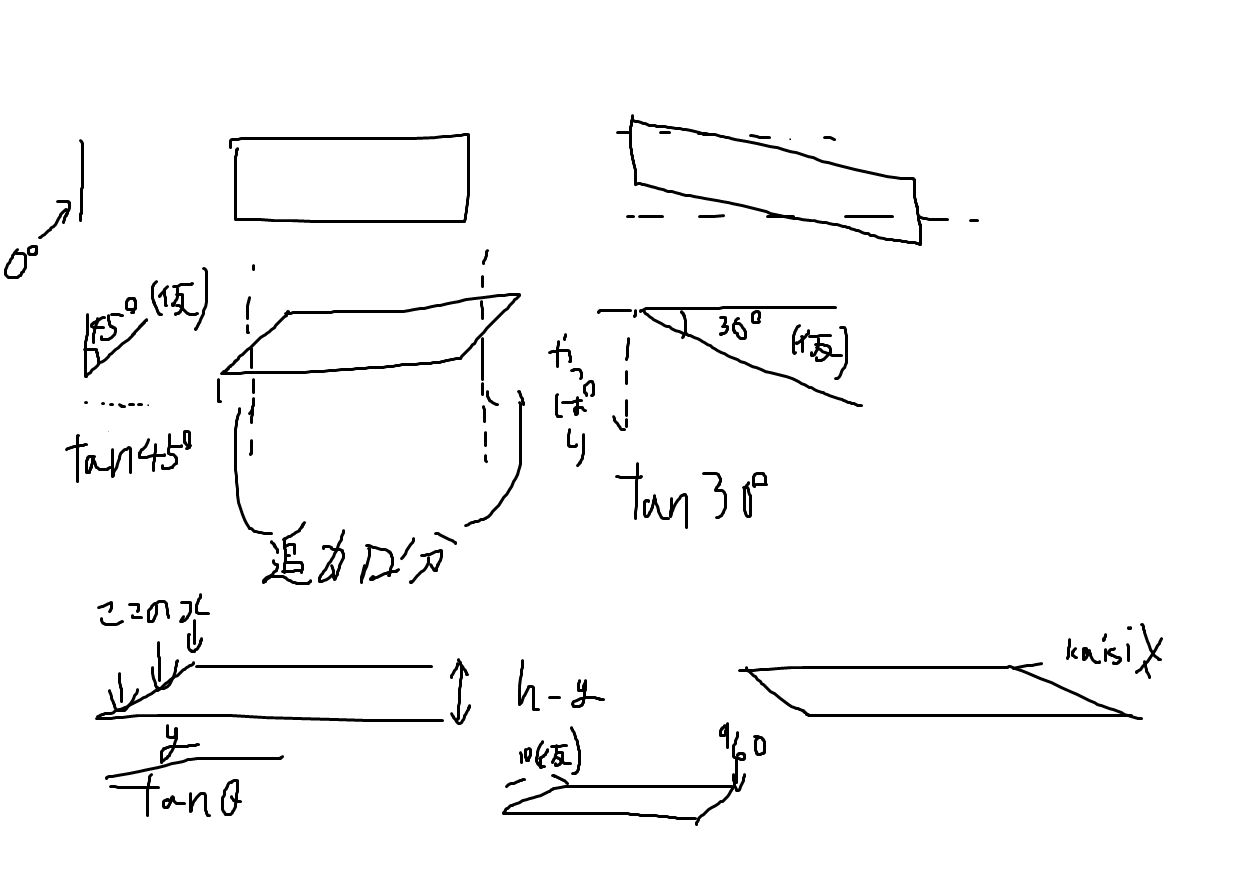 0°
45° (仮)
tan45°
追加分
30° (仮)
かたむり
tan30°
ここのX
h-y
y
tanθ
10(仮)
960
kaisiX